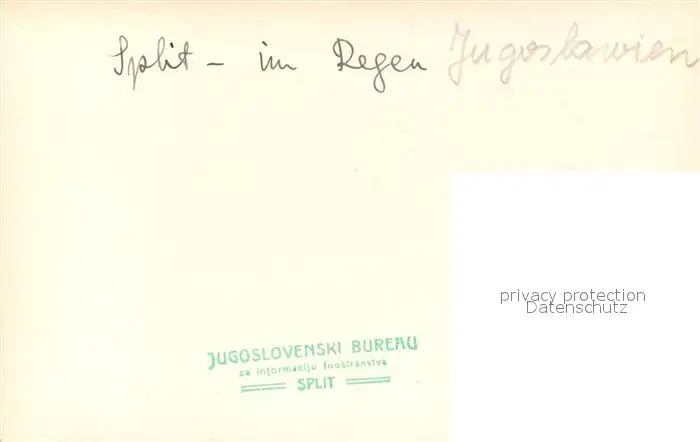 Split - im Regen Jugoslawien
privacy protection
Datenschutz
JUGOSLOVENSKI BUREAU
za informaciju inostranstva
SPLIT